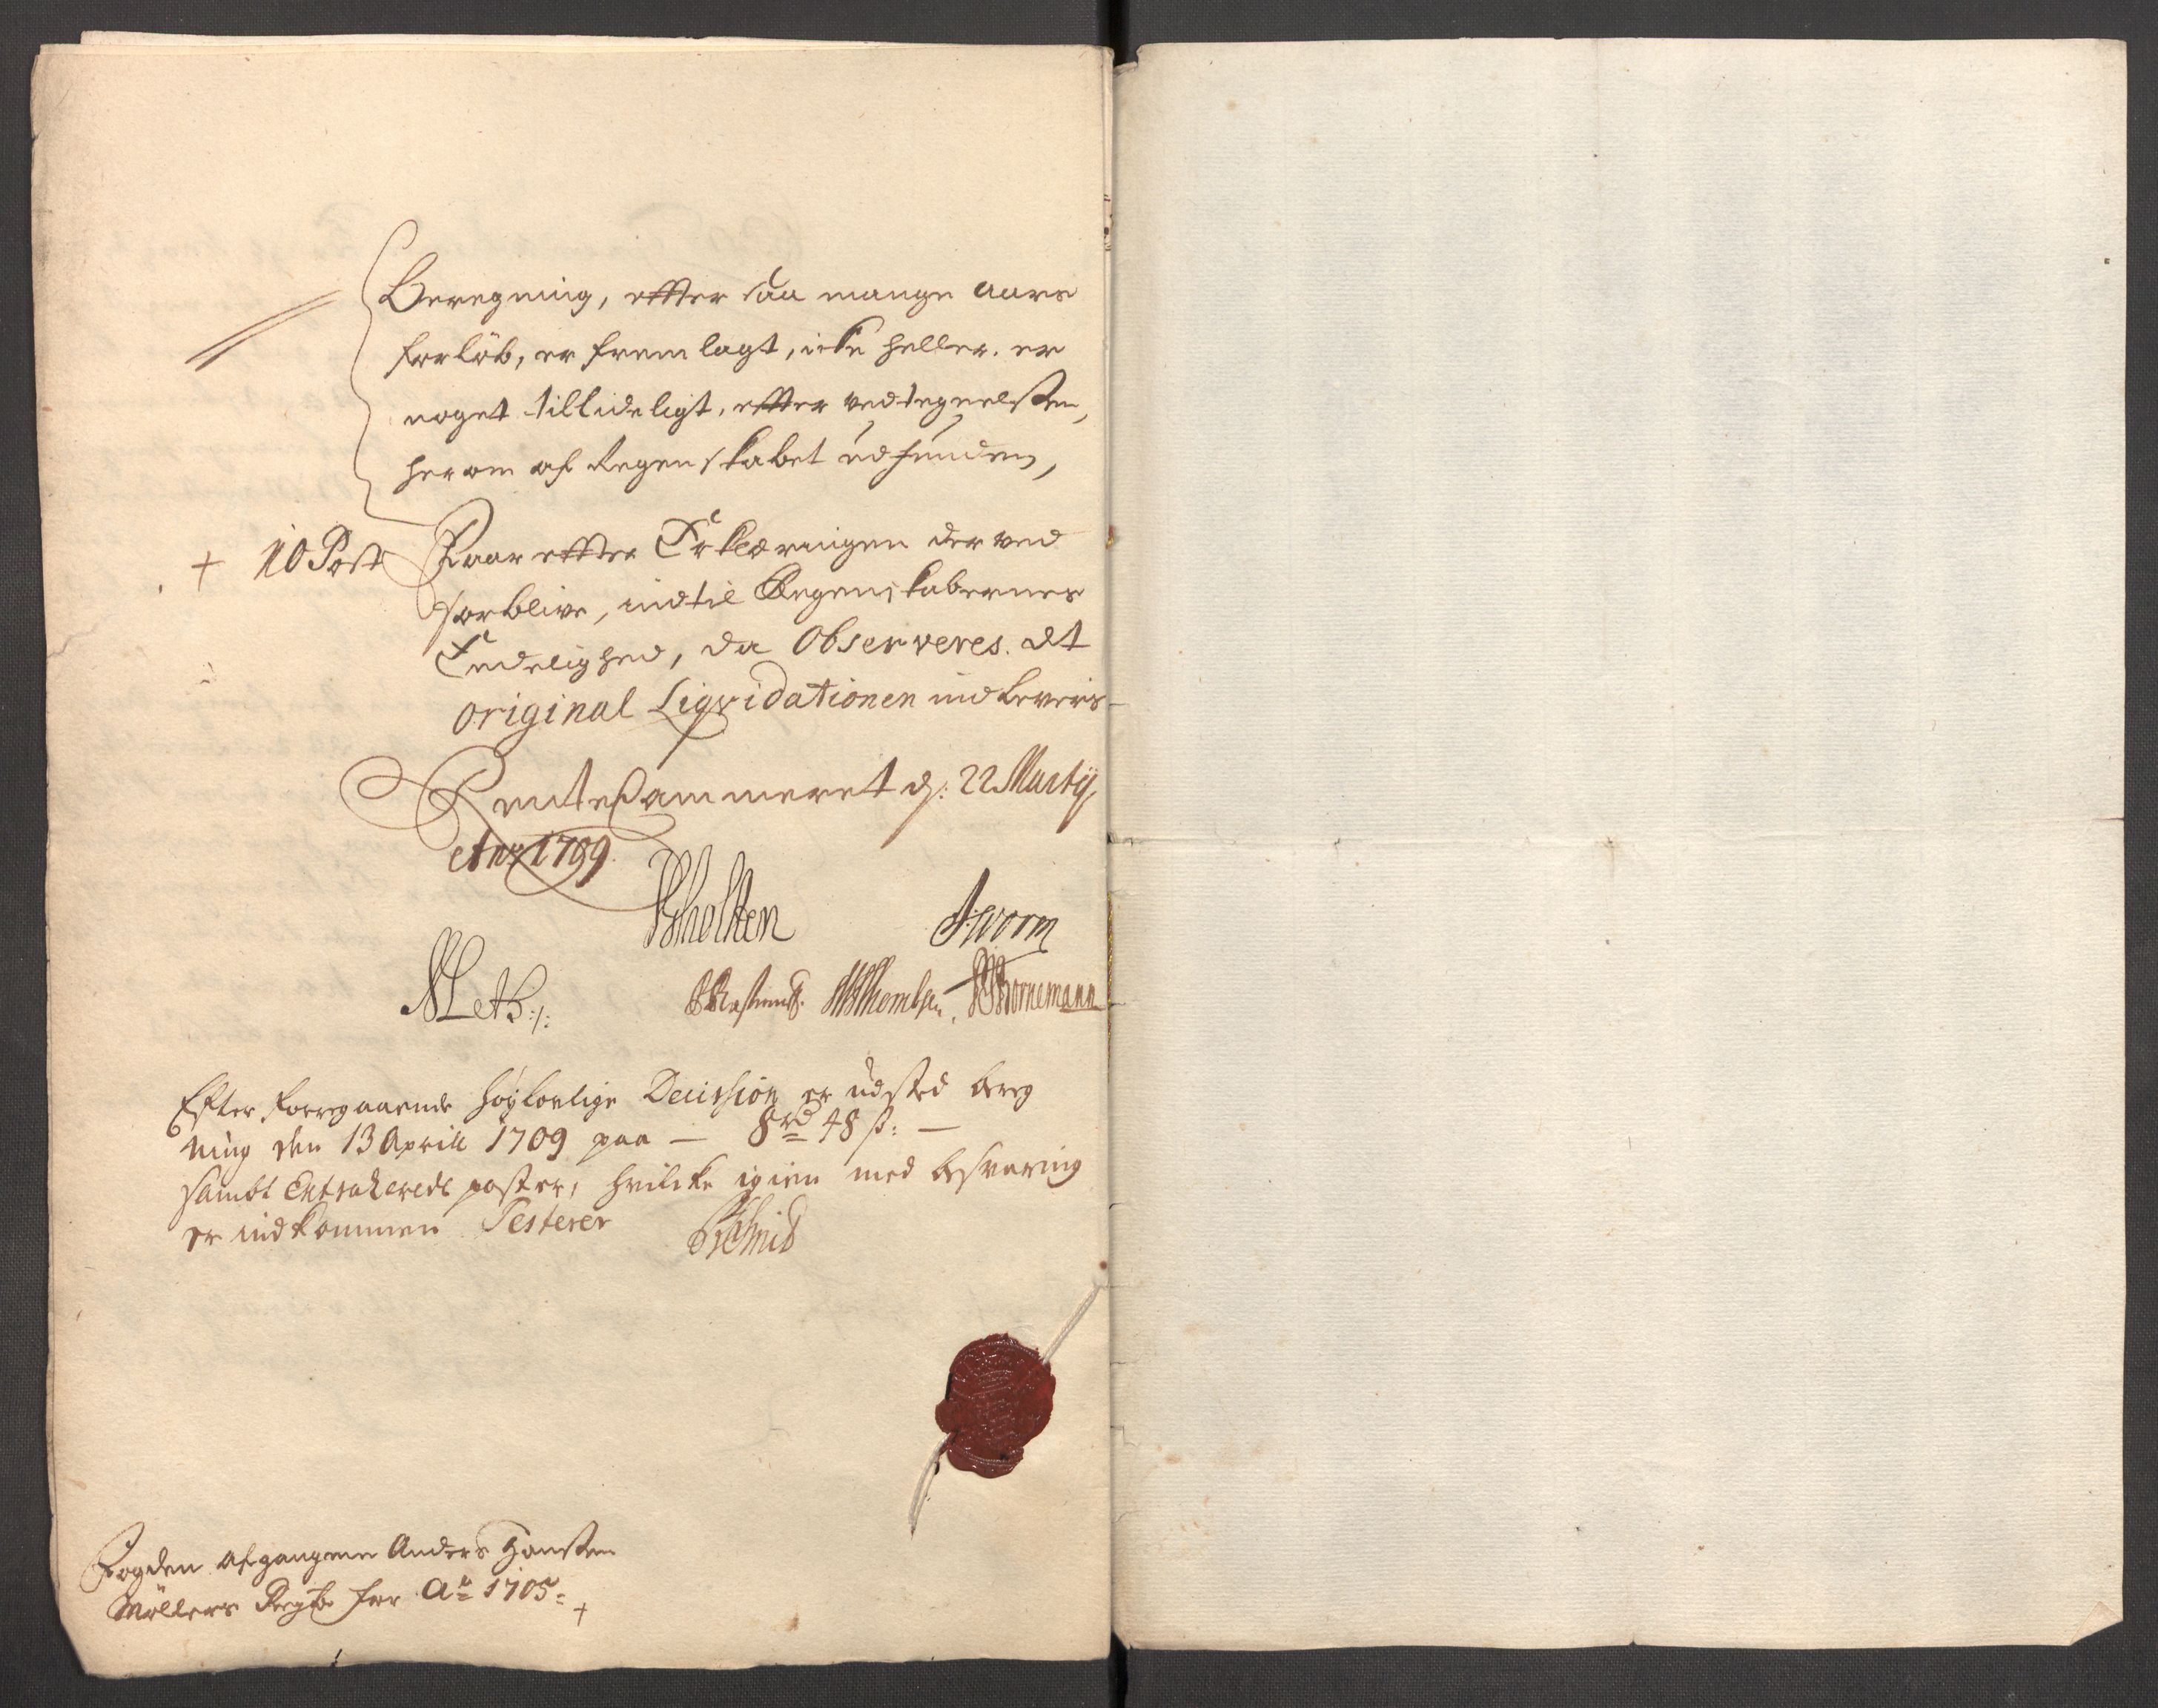 Beregning, effter saa mange aars
forløb, er frem lagt, icke heller. er
noget tillideligt, effter vedtegnelsen,
herom af Regenskabet udfunden,
+ 10 Post Faar effter Erklæringen derved
forblive, indtil Regenskabernes
Endelighed, da Observeres. at
original Liqvidationen indleveris
RenteCammeret d: 22 Martij
Ano 1709.
Scholten JWorm
Thombsen. Bornemann
Efter forregaaende høylovlige Decission er udsted bereg
ning den 13 Aprill 1709 paa — 8 rd 48 ß: —
sambt Extraherede poster, hvilcke igien med besvaring
er indkommen Testerer Schmid
Fogden afgangene Anders Hansen
Møllers Regsk: for Ao 1705: +